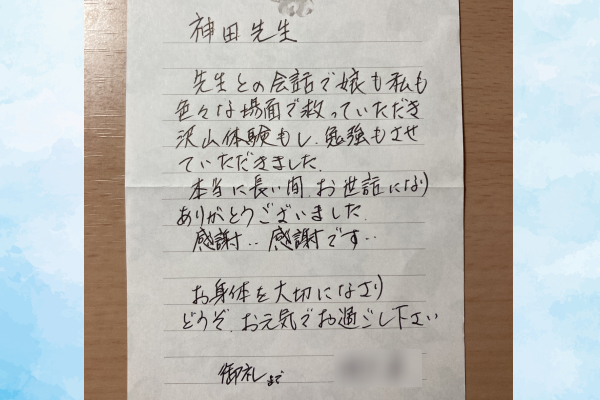 神田先生
先生との会話で娘も私も
色々な場面で救っていただき
沢山体験もし、勉強もさせ
ていただきました。
本当に長い間、お世話になり
ありがとうございました。
感謝‥感謝です‥
お身体を大切になさり
どうぞ、お元気でお過ごし下さい
御礼まで